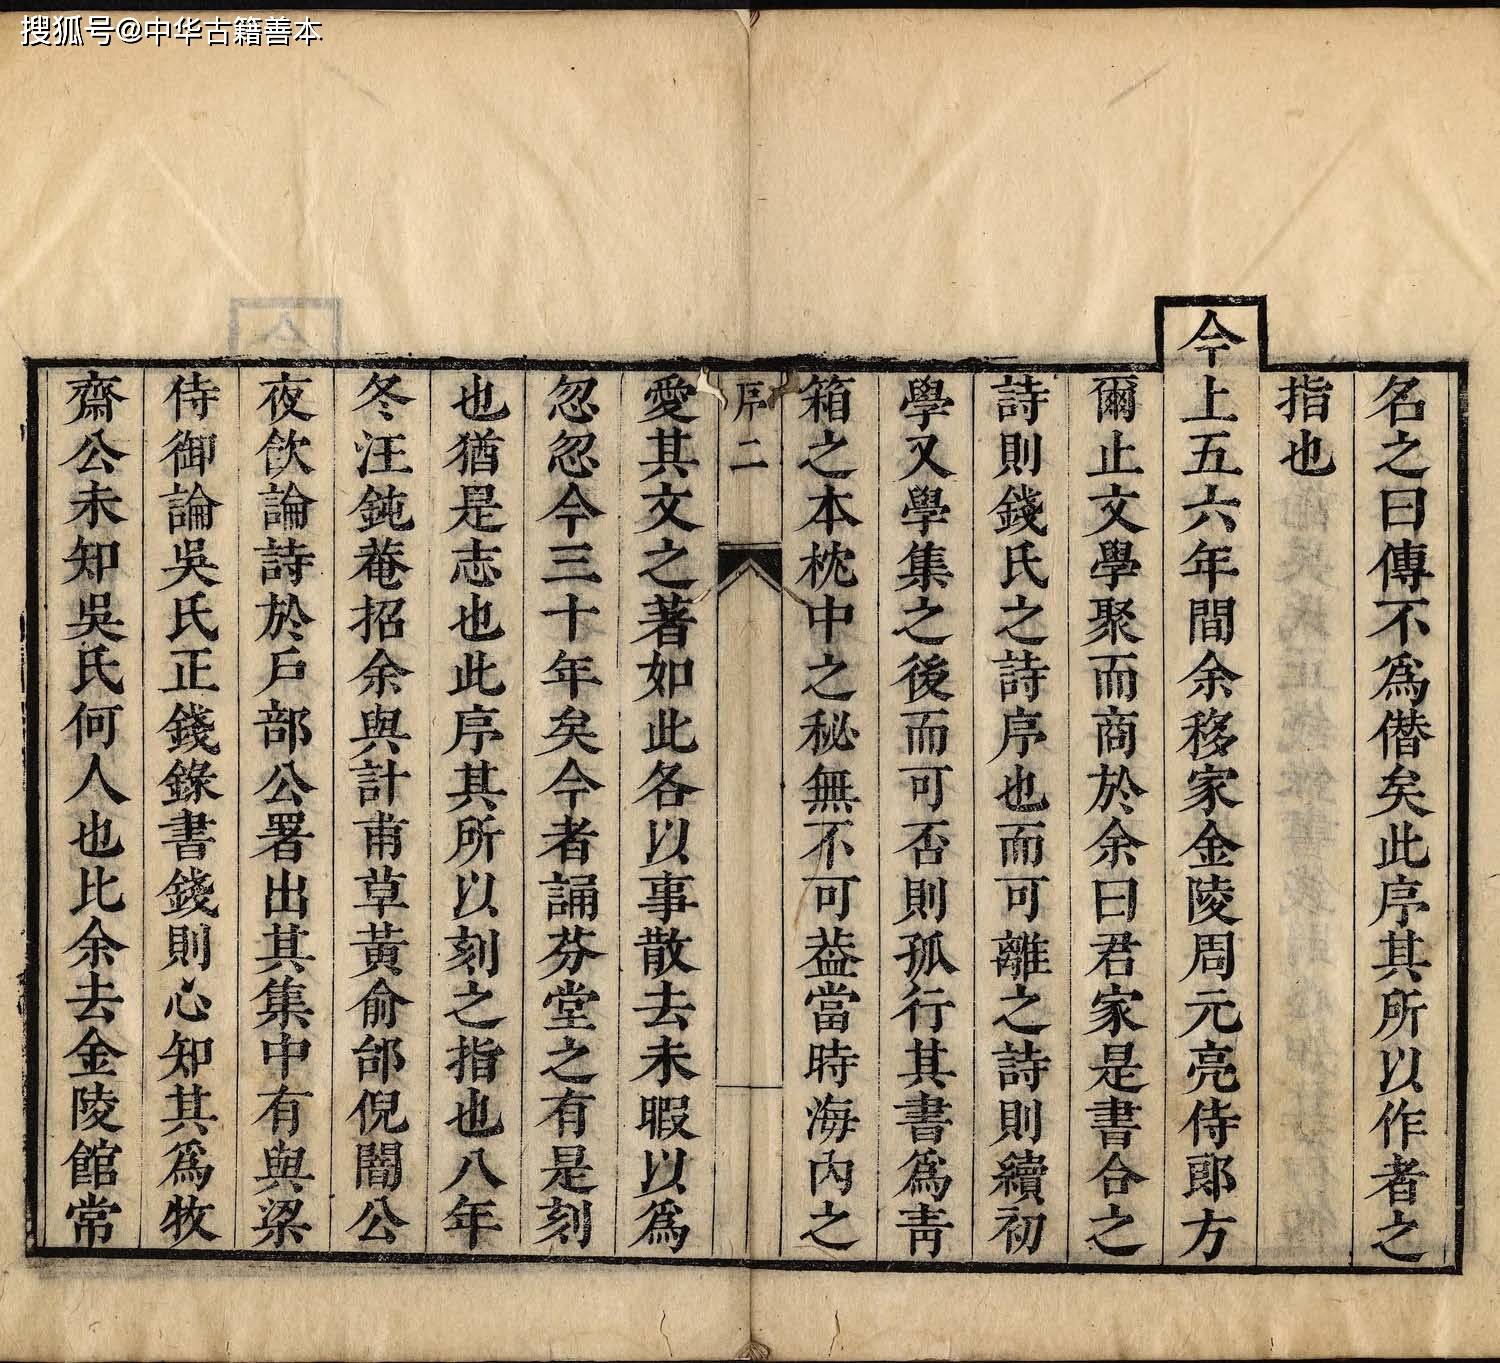 搜狐号@中华古籍善本
名之曰傳不爲僭矣此序其所以作者之
指也
今上五六年間余移家金陵周元亮侍郎方
爾止文學聚而商於余曰君家是書合之
詩則錢氏之詩序也而可離之詩則續初
學又學集之後而可否則孤行其書爲靑
箱之本枕中之秘無不可益當時海內之
序二
愛其文之著如此各以事散去未暇以爲
忽忽今三十年矣今者誦芬堂之有是刻
也猶是志也此序其所以刻之指也八年
冬汪鈍菴招余與計甫草黃俞邰倪闇公
夜飲論詩於戶部公署出其集中有與梁
侍御論吳氏正錢錄書錢則心知其爲牧
齋公未知吳氏何人也比余去金陵館常